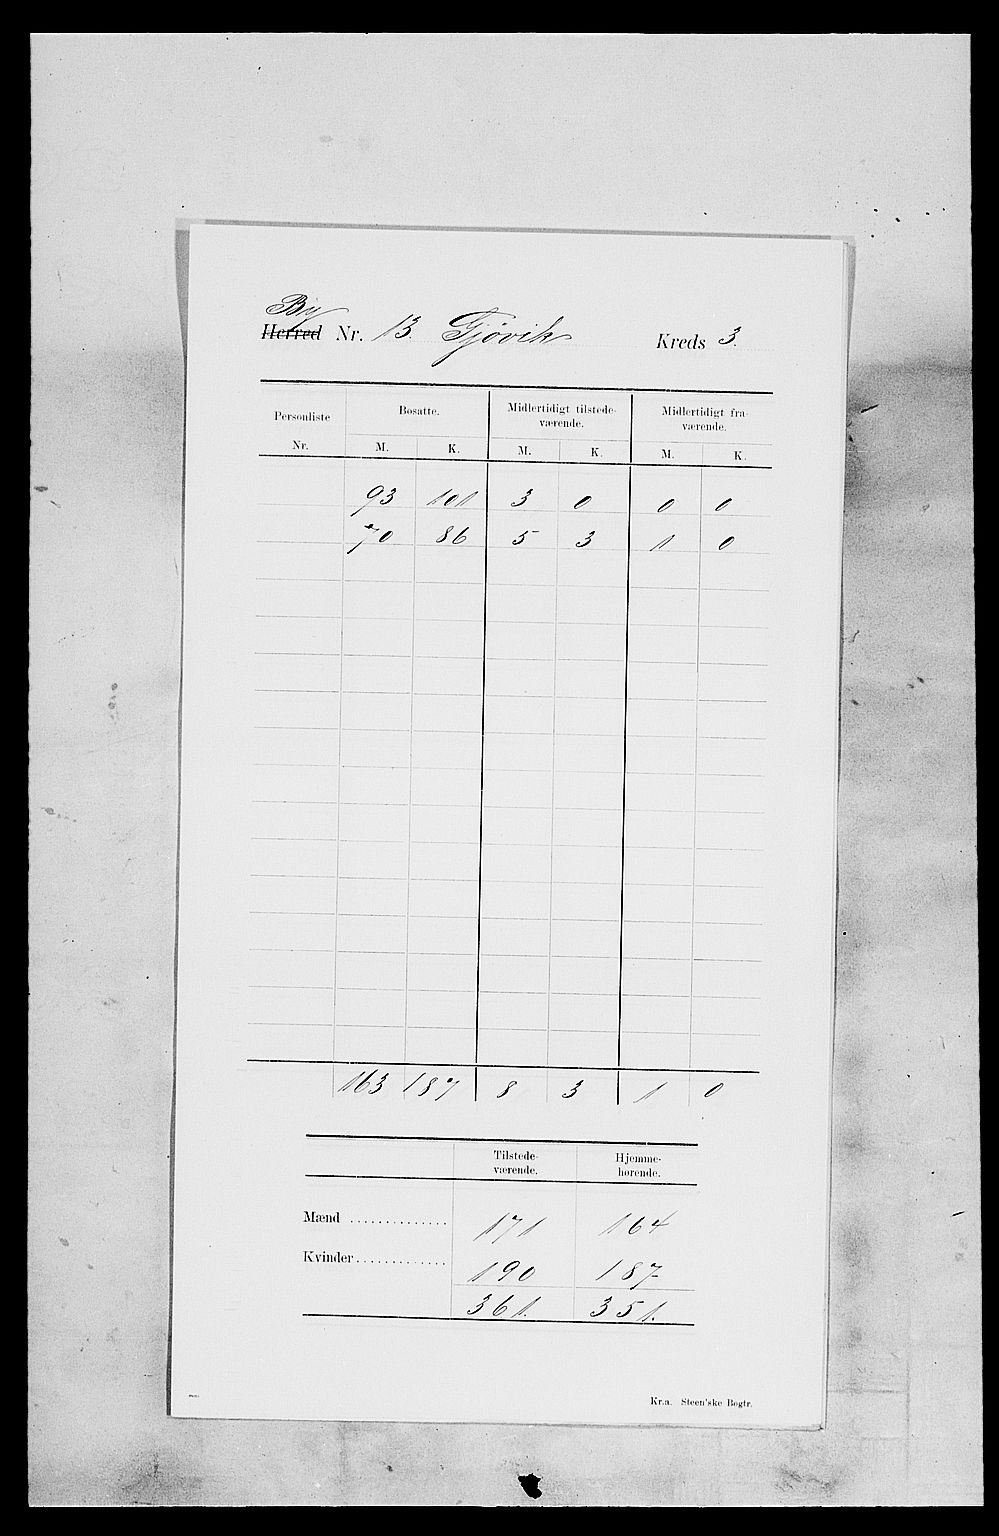 By
Herred Nr. 13. Gjövik Kreds 3.
Personliste Nr. Bosatte. Midlertidigt tilstede-værende. Midlertidigt fra-værende.
M. K. M. K. M. K.
93 101 3 0 0 0
70 86 5 3 1 0
163 187 8 3 1 0
Tilstede-værende. Hjemme-hørende.
Mænd .............. 171 164
Kvinder ............. 190 187
361. 351.
Kr.a. Steen'ske Bogtr.